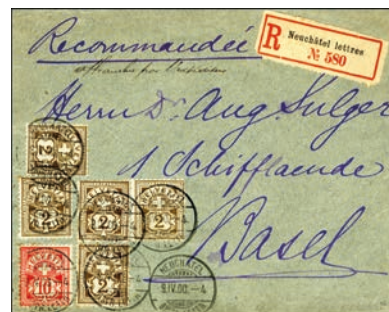 Recommandée
R Neuchâtel lettres
№ 580
Herrn Dr Aug. Sulger
1 Schifflaende
Basel
HELVETIA
2
2
2
2
10
2
NEUCHÂTEL
9.IV.00.–4